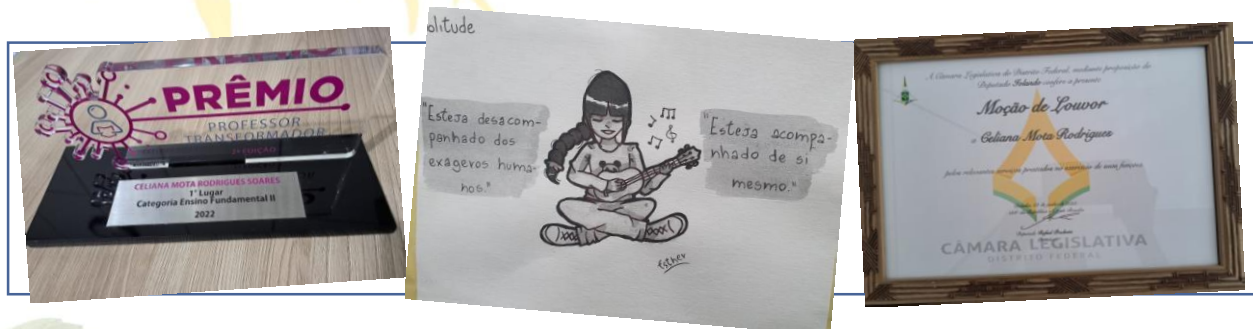 PRÊMIO
PROFESSOR
TRANSFORMADOR
CELIANA MOTA RODRIGUES SOARES
1° Lugar
Categoria Ensino Fundamental II
2022
olitude
"Esteja desacom-
panhado dos
exageros huma-
nos."
"Esteja acompa-
nhado de si
mesmo."
Esther
A Câmara Legislativa do Distrito Federal, mediante proposição do
Deputado Iolando confere a presente
Moção de Louvor
a Celiana Mota Rodrigues
pelos relevantes serviços prestados no exercício de suas funções.
CÂMARA LEGISLATIVA
DISTRITO FEDERAL